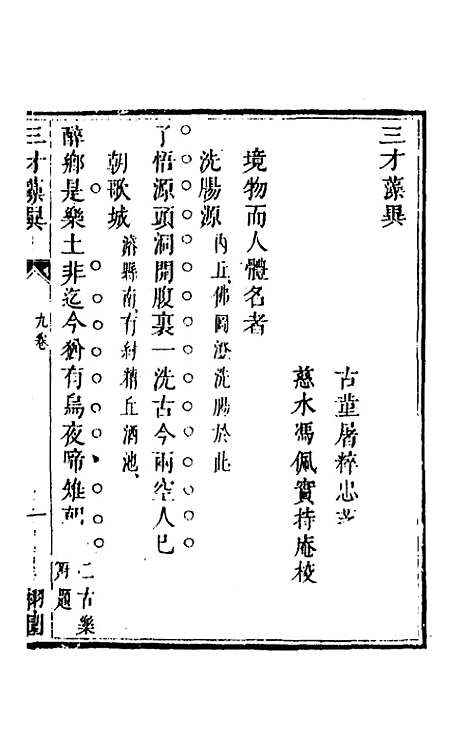 三才藻異
古堇屠粹忠著
慈水馮佩實持庵校
境物而人體名者
洗腸源 內丘佛圖澄洗腸於此
了悟源頭洞開腹裏一洗古今兩空人已
朝歌城 濬縣南有紂糟丘酒池
醉鄉是樂土非迄今猶有烏夜啼雉朝
二古樂府題
三才藻異
九卷
一
栩園